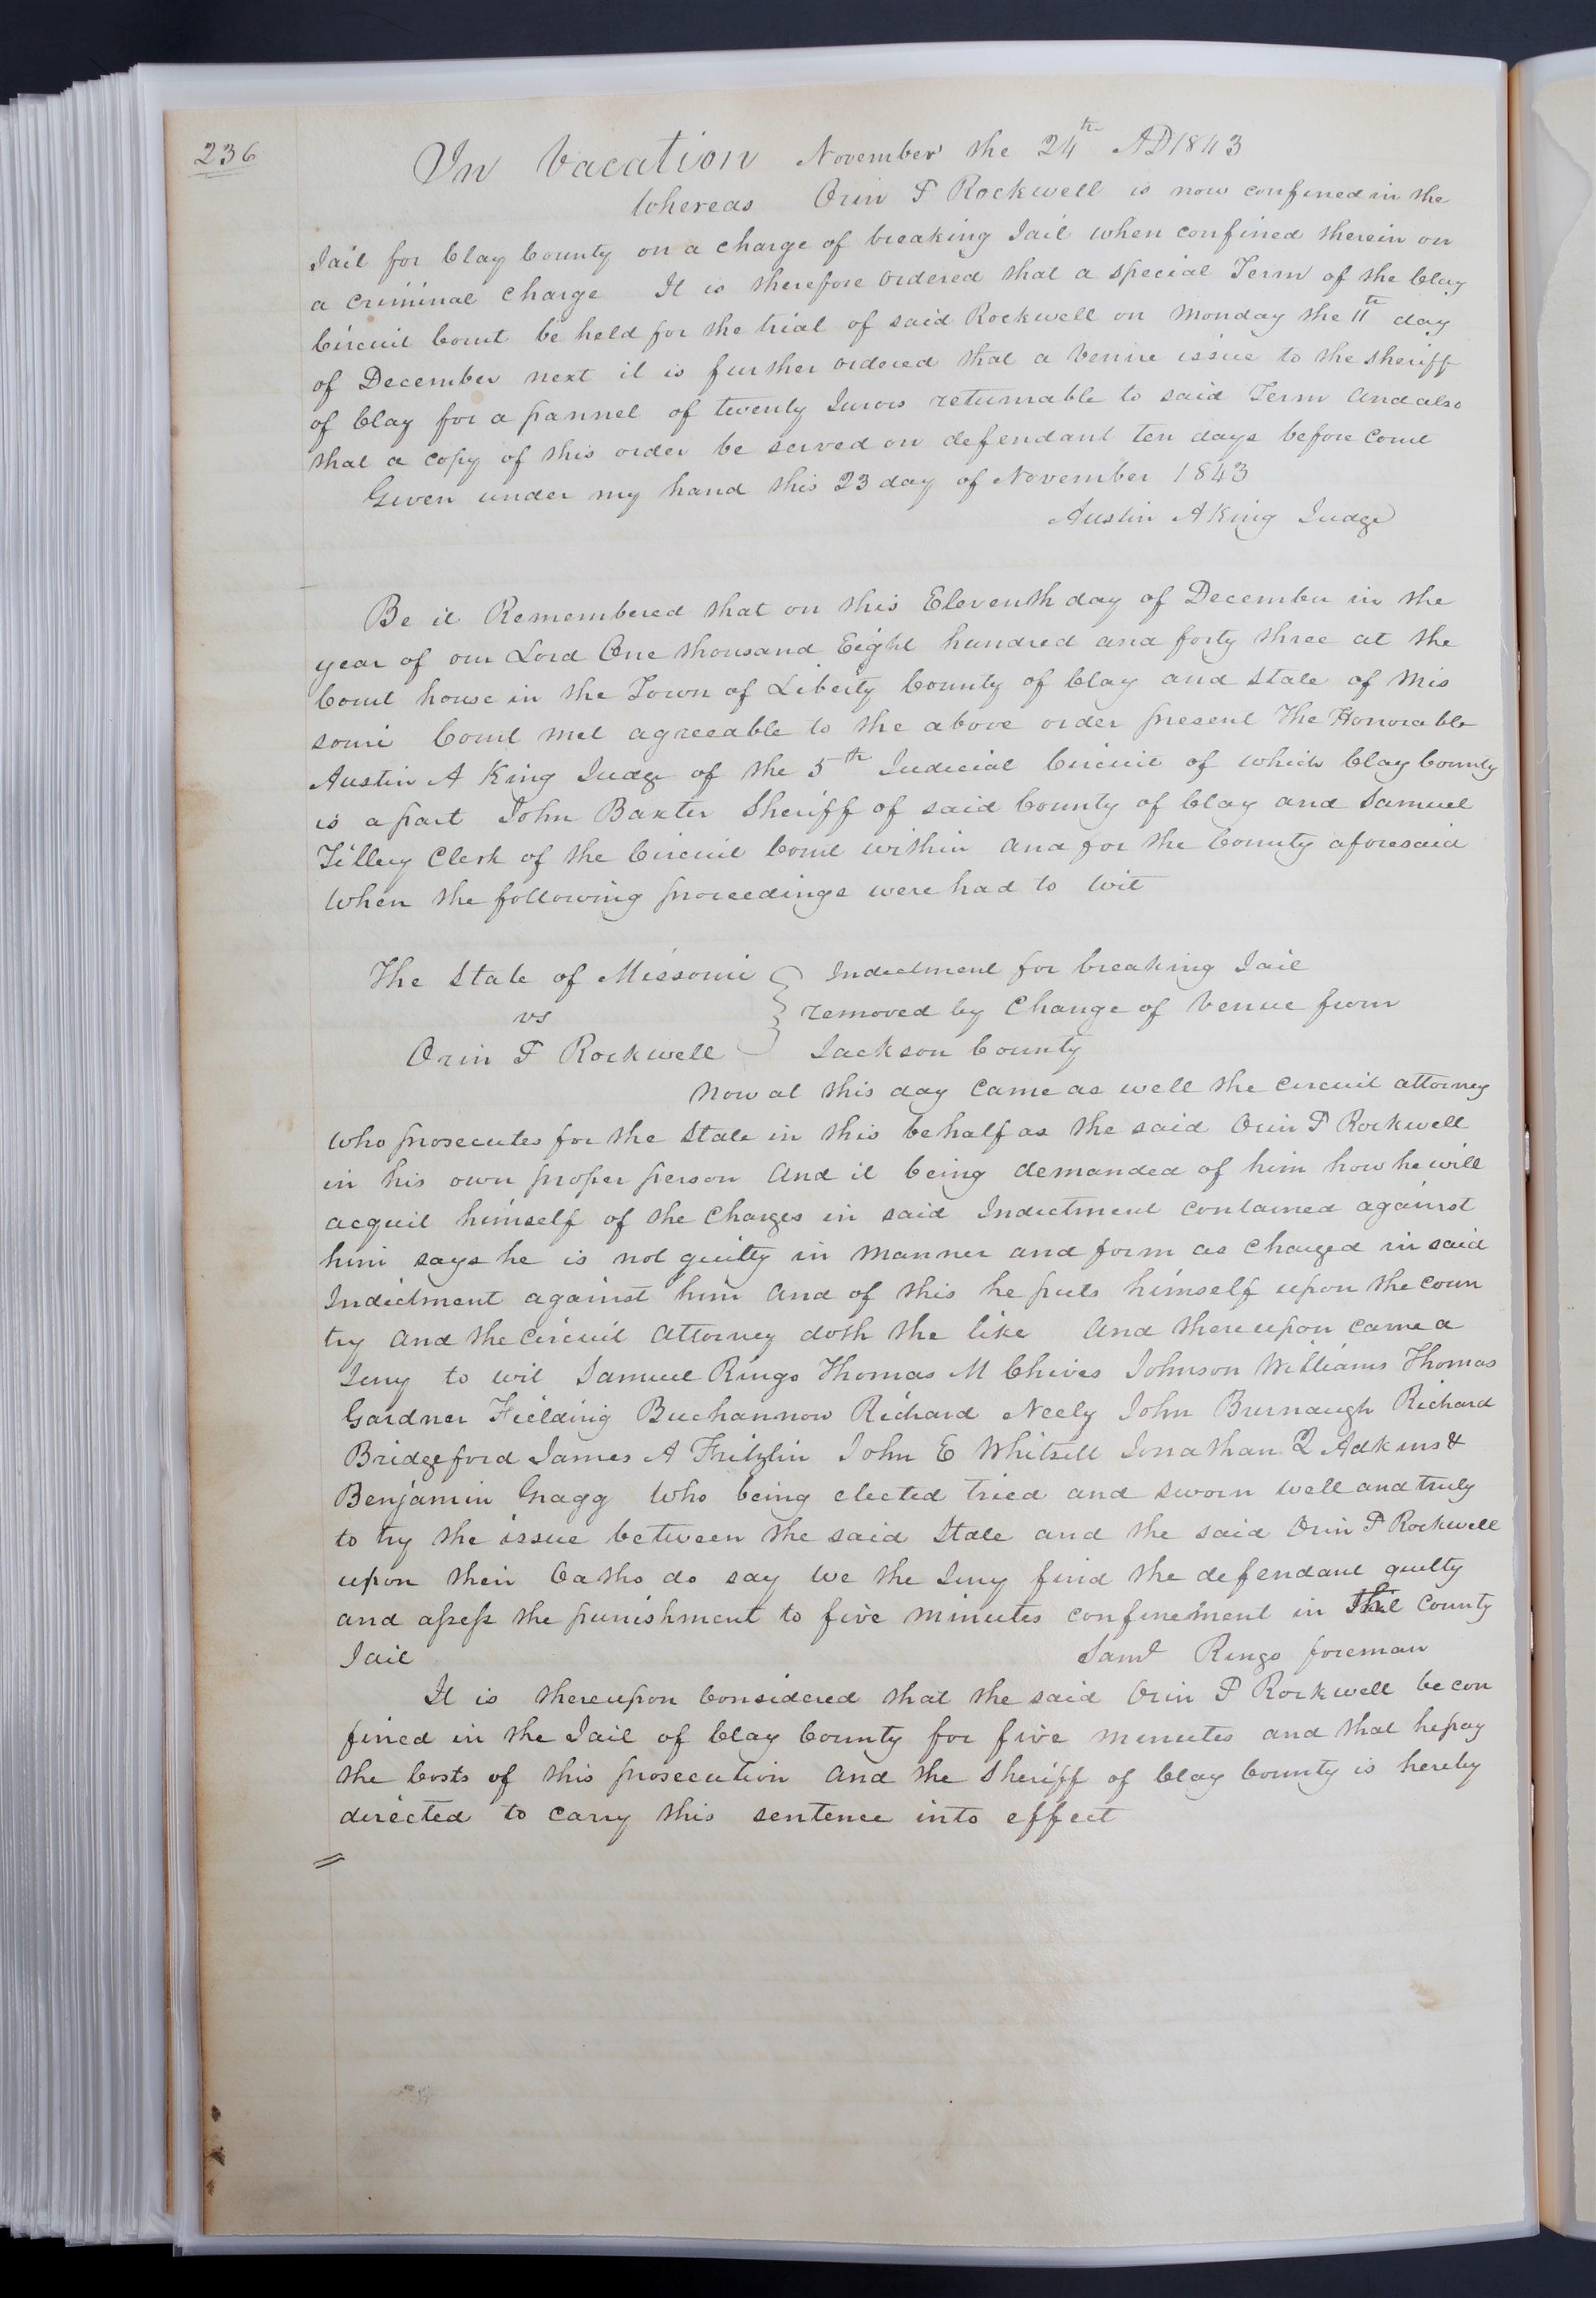 236
In Vacation November the 24th AD 1843
Whereas Orin P Rockwell is now confined in the
Jail for Clay County on a charge of breaking Jail when confined therein on
a criminal charge It is therefore ordered that a special Term of the Clay
Circuit Court be held for the trial of said Rockwell on Monday the 11th day
of December next it is further ordered that a Venire issue to the sheriff
of Clay for a pannel of twenty Jurors returnable to said Term And also
that a copy of this order be served on defendant ten days before Court
Given under my hand this 23 day of November 1843
Austin A King Judge
Be it Remembered that on this Eleventh day of December in the
year of our Lord One thousand Eight hundred and forty three at the
Court house in the Town of Liberty County of Clay and State of Mis
souri Court met agreeable to the above order present The Honorable
Austin A King Judge of the 5th Judicial Circuit of which Clay County
is a part John Baxter Sheriff of said County of Clay and Samuel
Tillery Clerk of the Circuit Court within and for the County aforesaid
When the following proceedings were had to wit
The State of Missouri } Indictment for breaking Jail
vs } removed by Change of Venue from
Orin P Rockwell } Jackson County
Now at this day came as well the circuit attorney
who prosecutes for the State in this behalf as the said Orin P Rockwell
in his own proper person And it being demanded of him how he will
acquit himself of the Charges in said Indictment contained against
him says he is not guilty in manner and form as charged in said
Indictment against him and of this he puts himself upon the coun
try and the circuit attorney doth the like And thereupon came a
Jury to wit Samuel Ringo Thomas M Chives Johnson Williams Thomas
Gardner Fielding Buchannon Richard Neely John Burnaugh Richard
Bridgeford James A Fritzlin John E Whitsell Jonathan Q Adkins &
Benjamin Gragg Who being elected tried and sworn well and truly
to try the issue between the said State and the said Orin P Rockwell
upon their Oaths do say We the Jury find the defendant guilty
and assess the punishment to five minutes confinement in the County
Jail Saml Ringo foreman
It is thereupon Considered that the said Orin P Rockwell be con
fined in the Jail of Clay County for five minutes and that he pay
the Costs of this prosecution And the Sheriff of Clay County is hereby
directed to carry this sentence into effect